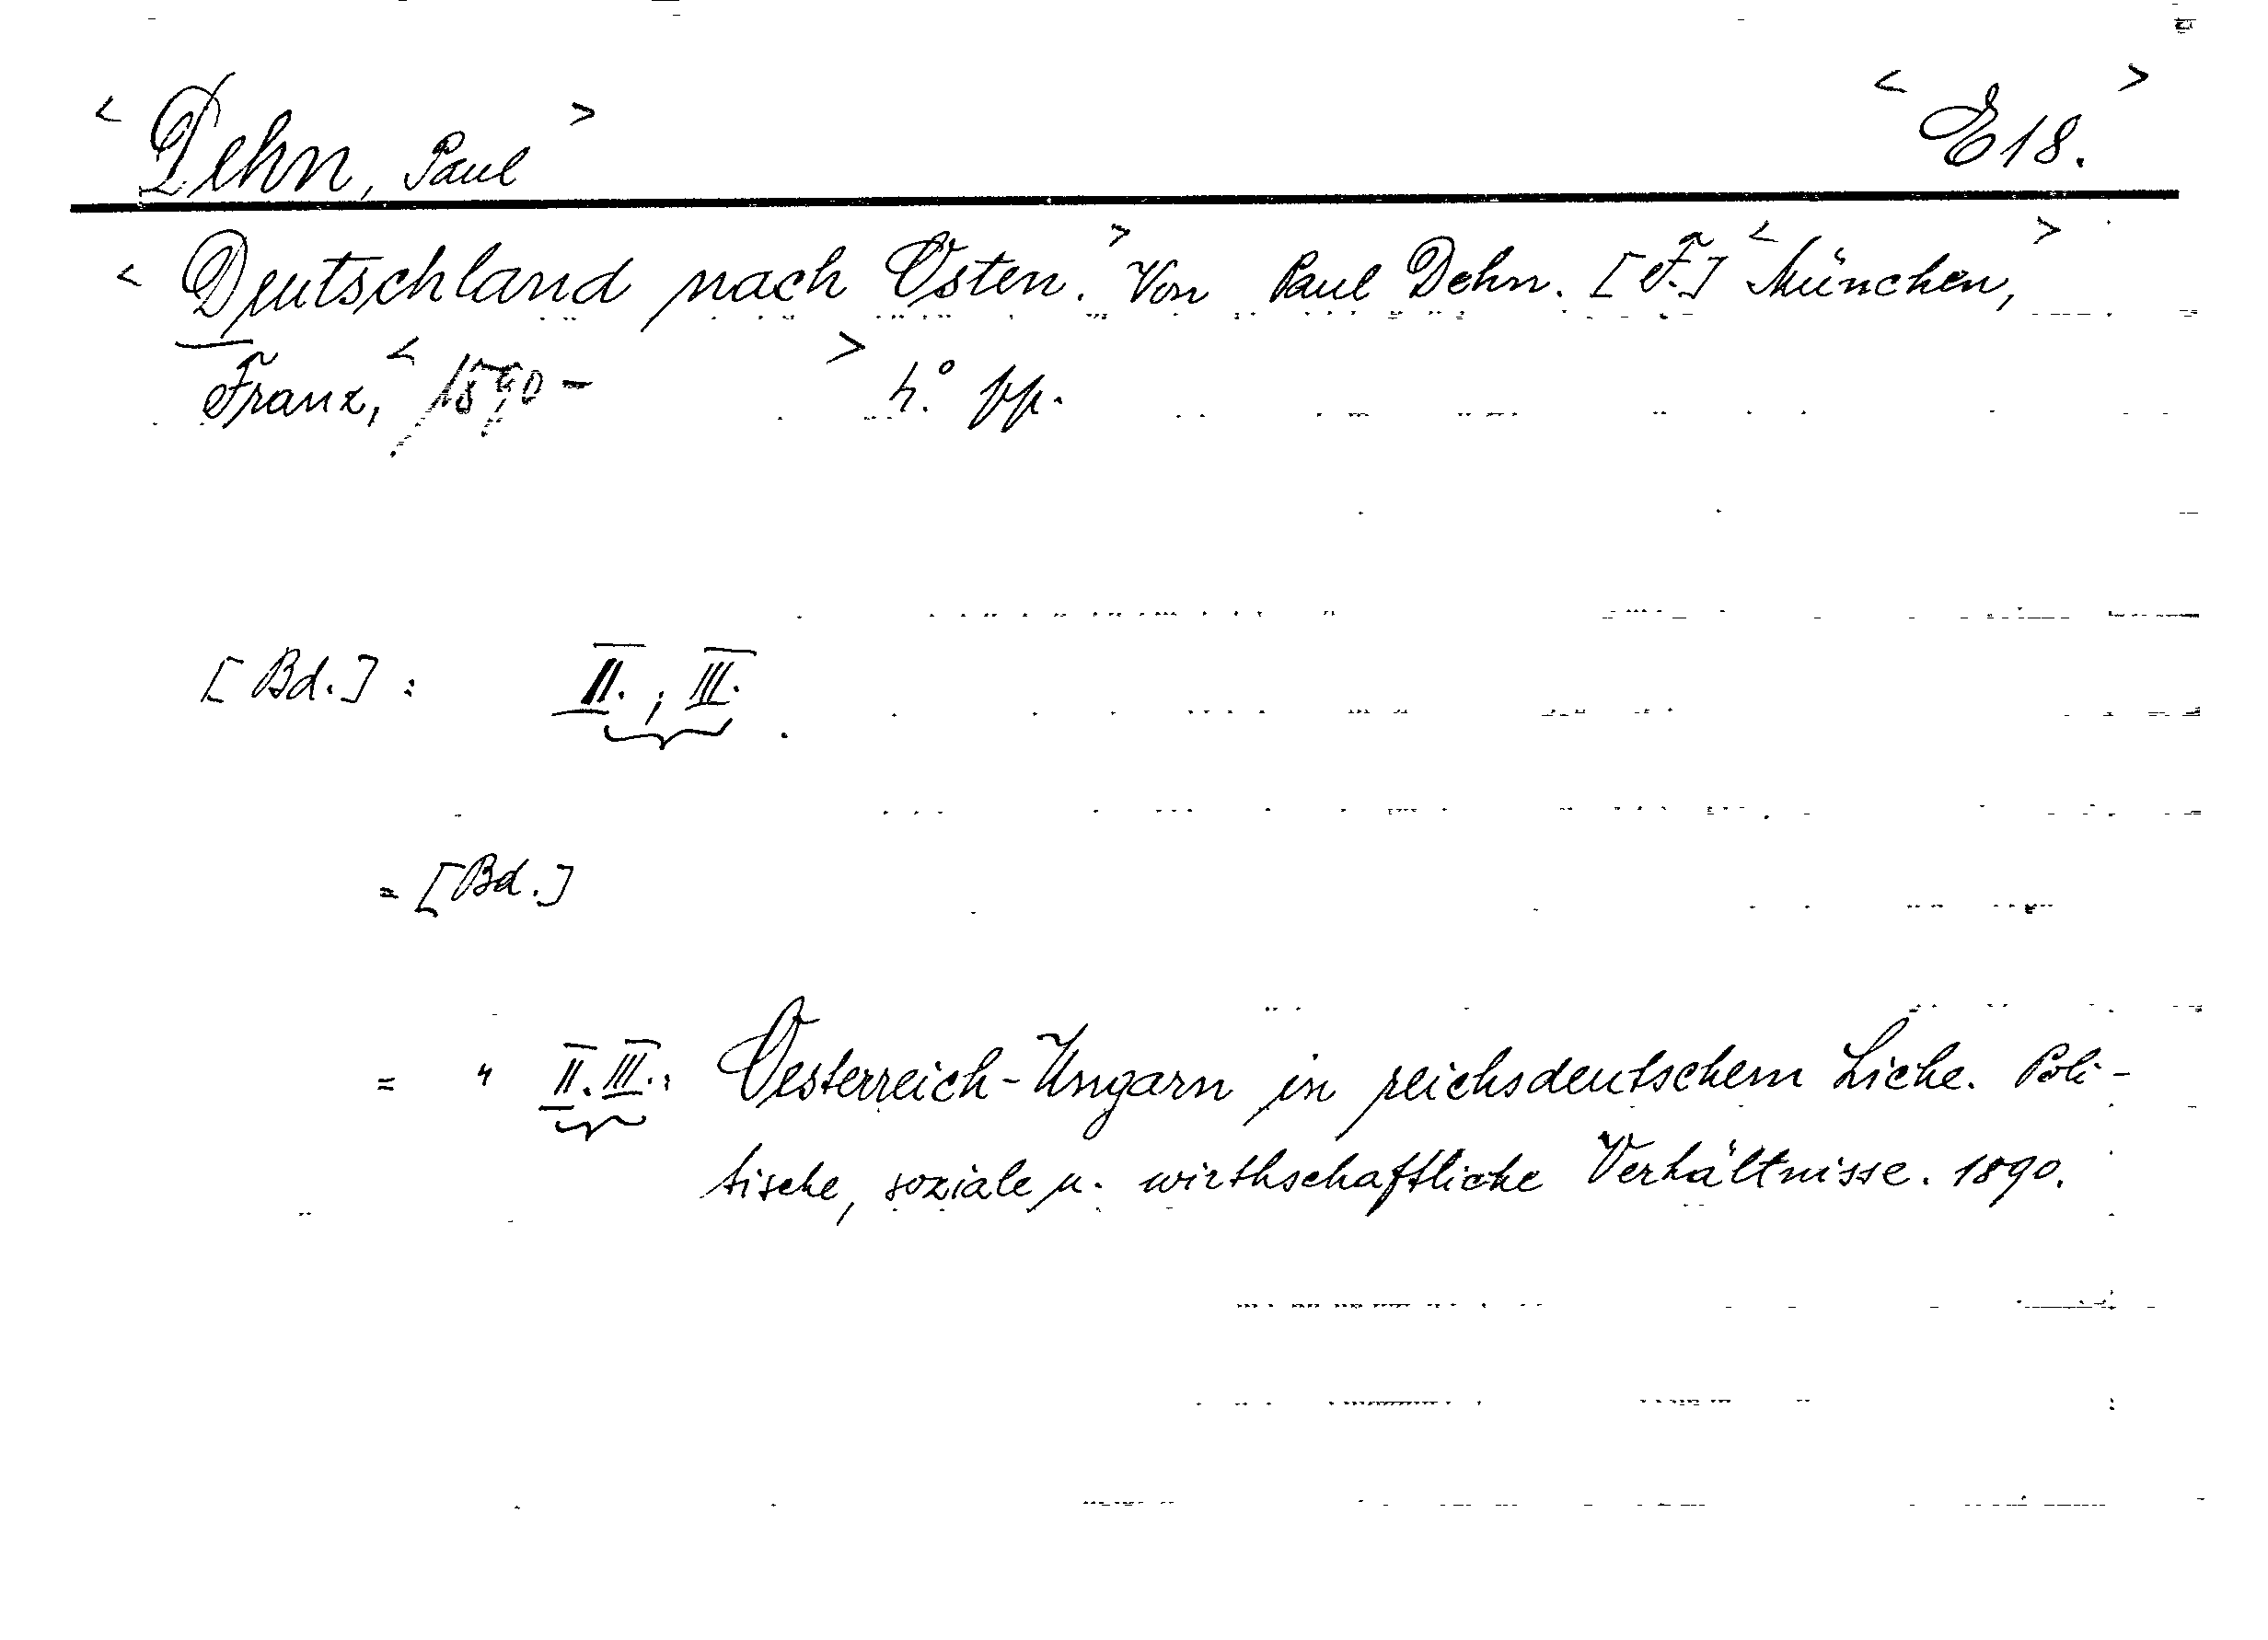 < Dehn, Paul > < E18. >
< Deutschland nach Osten. > Von Paul Dehn. [F.] < München, >
Franz, < 1890 - > 4.° pp.
[Bd.] : II. , III. .
= [Bd.]
= " II. III.: Oesterreich-Ungarn in reichsdeutschem Liche. Poli-
tische, soziale u. wirthschaftliche Verhältnisse. 1890.